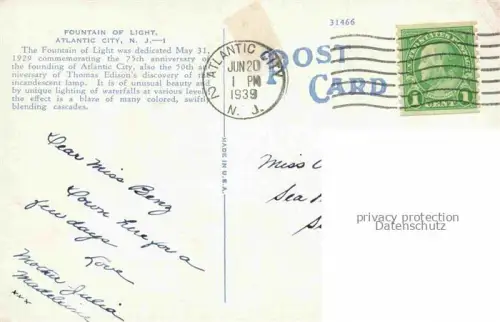 FOUNTAIN OF LIGHT,
ATLANTIC CITY, N. J.—1
The Fountain of Light was dedicated May 31,
1929 commemorating the 75th anniversary of
the founding of Atlantic City, also the 50th an-
niversary of Thomas Edison's discovery of the
incandescent lamp. It is of unusual beauty as
by unique lighting of waterfalls at various levels
the effect is a blaze of many colored, swiftly
blending cascades.
31466
POST
CARD
ATLANTIC CITY
JUN 20
1 PM
1939
N. J.
1 1
CENTS
Dear Miss Benz
Down here for a
few days
Love
Mother Julia
Madeleine
xxx
MADE IN U.S.A.
Miss
Sea
privacy protection
Datenschutz